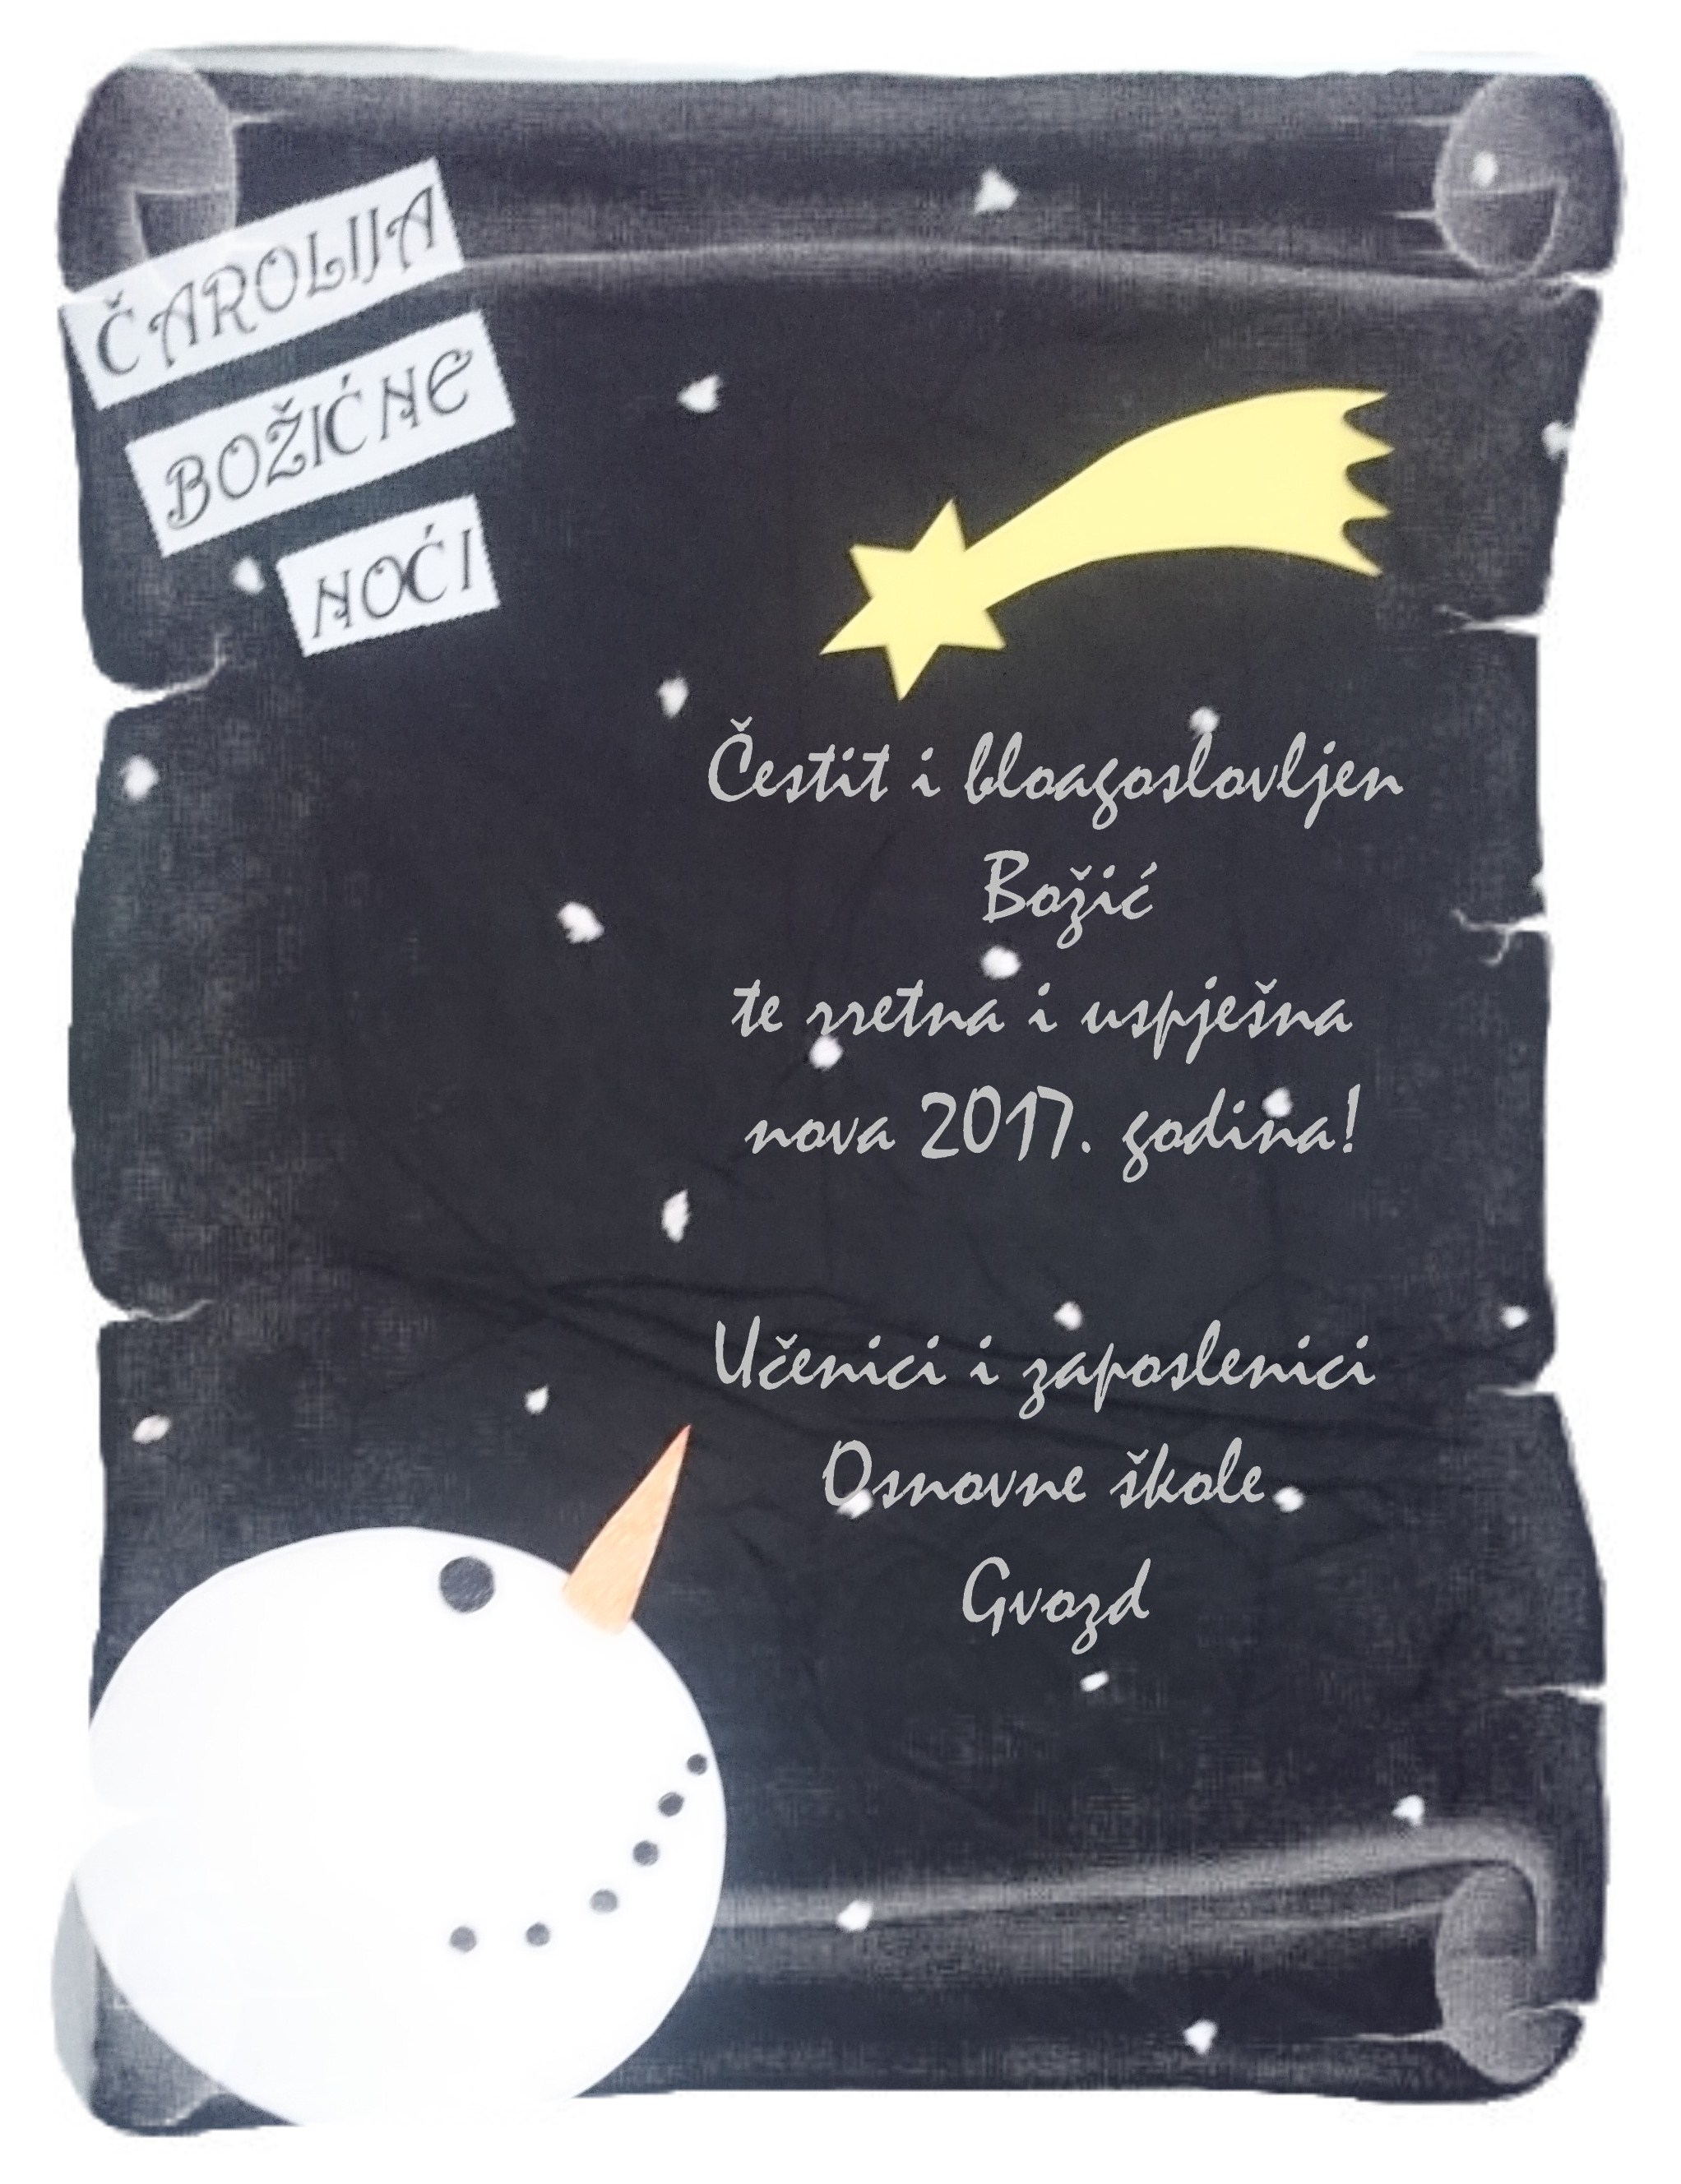 ČAROLIJA
BOŽIĆNE
NOĆI
Čestit i bloagoslovljen
Božić
te sretna i uspješna
nova 2017. godina!
Učenici i zaposlenici
Osnovne škole
Gvozd